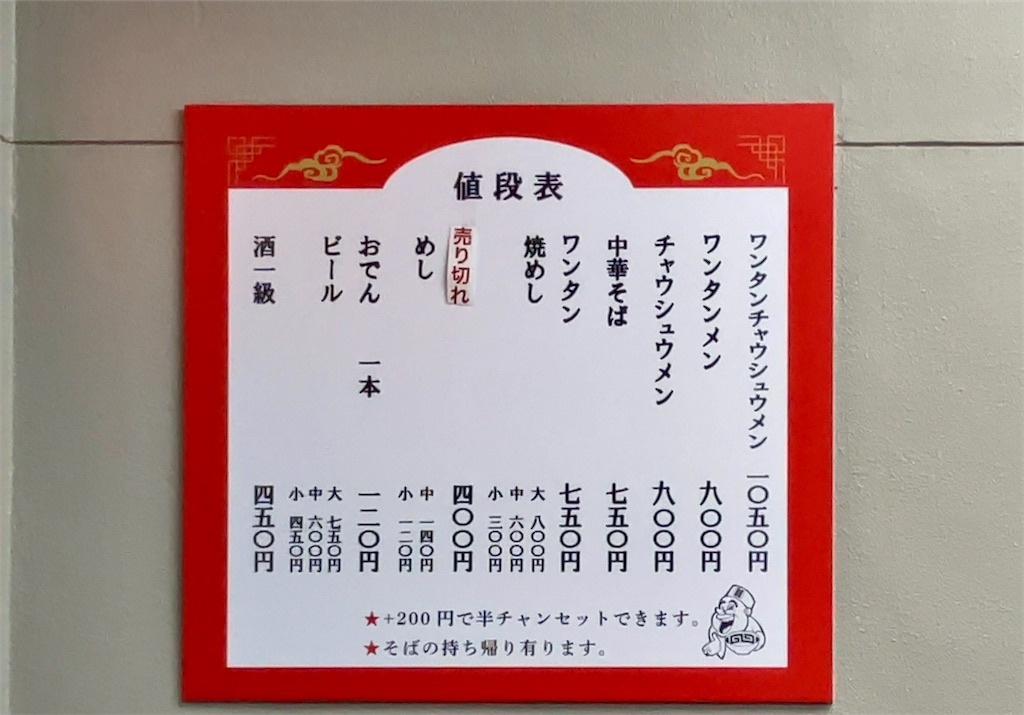 値段表
ワンタンチャウシュウメン 一〇五〇円
ワンタンメン 九〇〇円
チャウシュウメン 九〇〇円
中華そば 七五〇円
ワンタン 七五〇円
焼めし 大 八〇〇円
中 六〇〇円
小 三〇〇円
売り切れ 四〇〇円
めし 中 一四〇円
小 一二〇円
おでん 一本 一二〇円
ビール 大 七五〇円
中 六〇〇円
小 四五〇円
酒一級 四五〇円
★+200円で半チャンセットできます。
★そばの持ち帰り有ります。